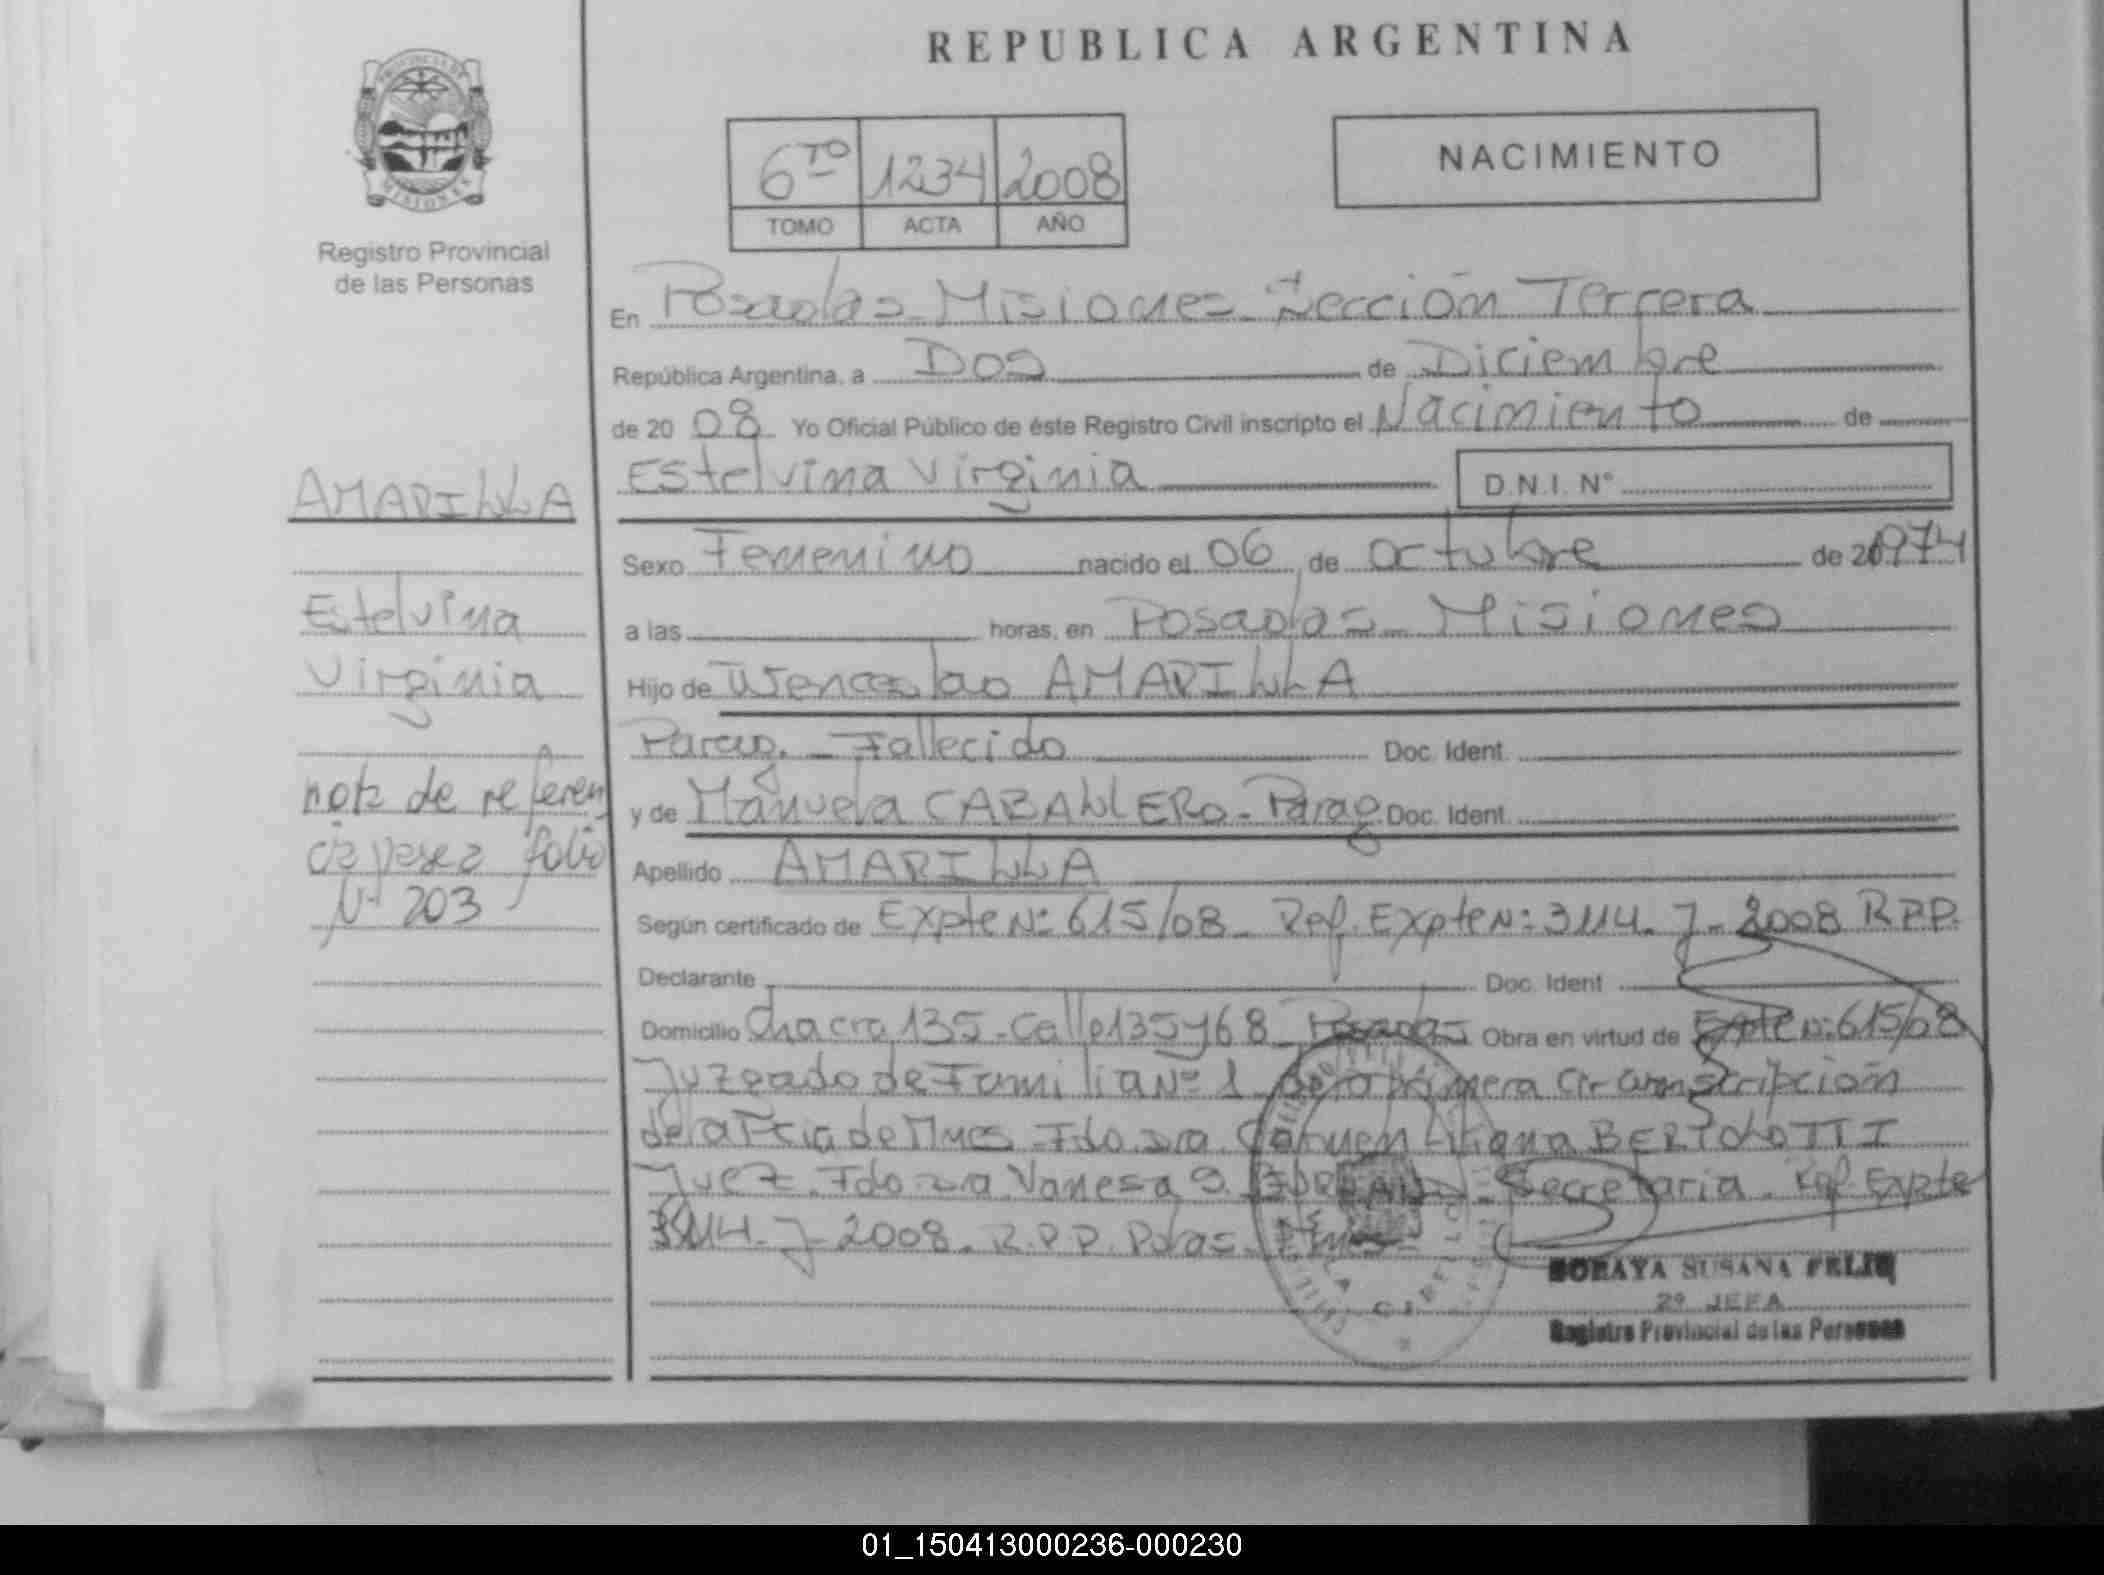 REPUBLICA ARGENTINA
PROVINCIA DE
MISIONES
Registro Provincial
de las Personas
6TO 1234 2008
TOMO ACTA AÑO
NACIMIENTO
En Posadas - Misiones - Sección Tercera
República Argentina, a Dos de Diciembre
de 20 08 Yo Oficial Público de éste Registro Civil inscripto el Nacimiento de
Estelvina Virginia D.N.I. Nº
Sexo Femenino nacido el 06 de octubre de 20 1974
a las horas, en Posadas - Misiones
Hijo de Wenceslao AMARILLA
Parag. - Fallecido Doc. Ident.
y de Manuela CABALLERO - Parag Doc. Ident.
Apellido AMARILLA
Según certificado de Expte Nº 615/08 - Ref. Expte Nº 3114 - J - 2008 R.P.P.
Declarante Doc. Ident
Domicilio Chacra 135 - Calle 135 y 68 Posadas Obra en virtud de Expte Nº 615/08
Juzgado de Familia Nº 1 de la primera Circunscripción
de la Pcia de Mnes - Fdo. Dra. Carmen Liliana BERTOLOTTI
Juez - Fdo Dra. Vanesa S. - Secretaria - Ref. Expte
3114 - J - 2008 - R.P.P. Pdas - Mnes -
SORAYA SUSANA FELIU
2º JEFA
Registro Provincial de las Personas
AMARILLA
Estelvina
Virginia
nota de referen
cia pasa a folio
Nº 203
01_150413000236-000230